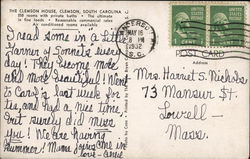 THE CLEMSON HOUSE, CLEMSON, SOUTH CAROLINA
250 rooms with private baths • The ultimate
in fine foods • Reasonable commercial rates
Air conditioned rooms available
MAY 16
8 PM
1952
S.C.
POST CARD
Address
I read some in "A Little
Garner of Sonnets" every
day! They become more
and more beautiful! Went
to Carl's last week for
tea, and had a nice time,
but surely did miss
you! We are having
Summer! Mama joins me in
love -
Mrs. Harriet S. Nichols
73 Mansur St.
Lowell -
Mass.